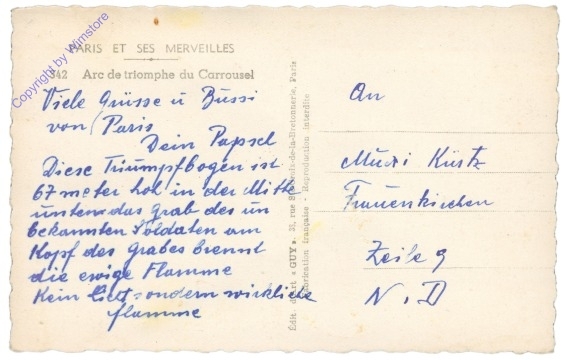 PARIS ET SES MERVEILLES
342 Arc de triomphe du Carrousel
Viele Grüsse u Bussi
von Paris
Dein Papsel
Diese Triumpfbogen ist
67 meter hoh in der Mitte
unten das Grab des un
bekannten Soldaten am
Kopf des Grabes brennt
die ewige Flamme
Kein licht sondern wirkliche
flamme
Édit. d'Art « GUY », 30, rue Ste-Croix-de-la-Bretonnerie, Paris
Fabrication française - Reproduction interdite
An
Muxi Küstz
Frauenkirchen
Zeile 9
N. D
Copyright by Wimstore